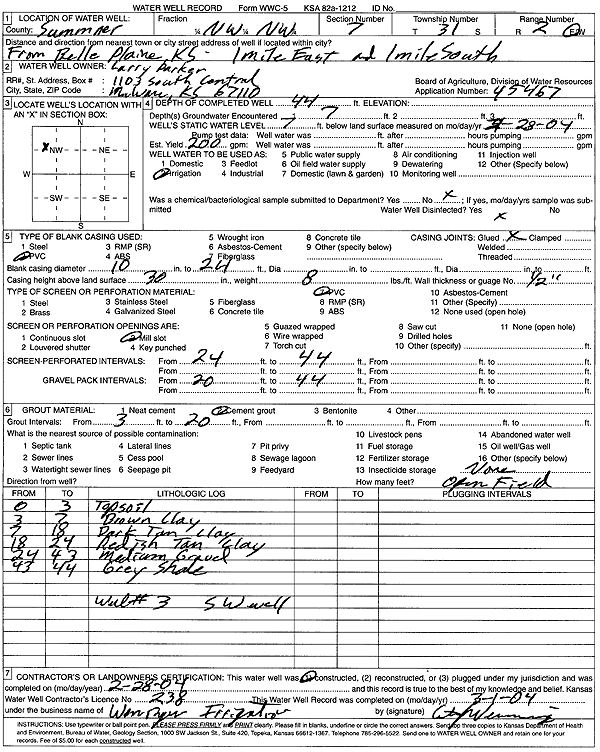 WATER WELL RECORD Form WWC-5 KSA 82a-1212 ID No.
1 LOCATION OF WATER WELL: Fraction Section Number Township Number Range Number
County: Summner ¼ NW ¼ NW ¼ 7 T 31 S R 2 E/W
Distance and direction from nearest town or city street address of well if located within city?
From Belle Plaine KS - 1 mile East and 1 mile South
2 WATER WELL OWNER: Larry Parker
RR#, St. Address, Box # : 1103 South Central Board of Agriculture, Division of Water Resources
City, State, ZIP Code : Mulvane, KS 67110 Application Number: 45467
3 LOCATE WELL'S LOCATION WITH AN "X" IN SECTION BOX:
N
X NW NE
W E
SW SE
S
4 DEPTH OF COMPLETED WELL 44 ft. ELEVATION:
Depth(s) Groundwater Encountered 1 7 ft. 2 ft. 3 ft.
WELL'S STATIC WATER LEVEL 7 ft. below land surface measured on mo/day/yr 2-28-04
Pump test data: Well water was ft. after hours pumping gpm
Est. Yield 200 gpm: Well water was ft. after hours pumping gpm
WELL WATER TO BE USED AS: 5 Public water supply 8 Air conditioning 11 Injection well
1 Domestic 3 Feedlot 6 Oil field water supply 9 Dewatering 12 Other (Specify below)
2 Irrigation 4 Industrial 7 Domestic (lawn & garden) 10 Monitoring well
Was a chemical/bacteriological sample submitted to Department? Yes No X ; If yes, mo/day/yrs sample was submitted
Water Well Disinfected? Yes X No
5 TYPE OF BLANK CASING USED: 5 Wrought iron 8 Concrete tile CASING JOINTS: Glued X Clamped
1 Steel 3 RMP (SR) 6 Asbestos-Cement 9 Other (specify below) Welded
2 PVC 4 ABS 7 Fiberglass Threaded
Blank casing diameter 10 in. to 24 ft., Dia in. to ft., Dia in. to ft.
Casing height above land surface 30 in., weight 8 lbs./ft. Wall thickness or guage No. 1/2"
TYPE OF SCREEN OR PERFORATION MATERIAL: 7 PVC 10 Asbestos-Cement
1 Steel 3 Stainless Steel 5 Fiberglass 8 RMP (SR) 11 Other (Specify)
2 Brass 4 Galvanized Steel 6 Concrete tile 9 ABS 12 None used (open hole)
SCREEN OR PERFORATION OPENINGS ARE: 5 Guazed wrapped 8 Saw cut 11 None (open hole)
1 Continuous slot 3 Mill slot 6 Wire wrapped 9 Drilled holes
2 Louvered shutter 4 Key punched 7 Torch cut 10 Other (specify) ft.
SCREEN-PERFORATED INTERVALS: From 24 ft. to 44 ft., From ft. to ft.
From ft. to ft., From ft. to ft.
GRAVEL PACK INTERVALS: From 20 ft. to 44 ft., From ft. to ft.
From ft. to ft., From ft. to ft.
6 GROUT MATERIAL: 1 Neat cement 2 Cement grout 3 Bentonite 4 Other
Grout Intervals: From 3 ft. to 20 ft., From ft. to ft., From ft. to ft.
What is the nearest source of possible contamination: 10 Livestock pens 14 Abandoned water well
1 Septic tank 4 Lateral lines 7 Pit privy 11 Fuel storage 15 Oil well/Gas well
2 Sewer lines 5 Cess pool 8 Sewage lagoon 12 Fertilizer storage 16 Other (specify below)
3 Watertight sewer lines 6 Seepage pit 9 Feedyard 13 Insecticide storage None
Direction from well? How many feet? Open Field
FROM TO LITHOLOGIC LOG FROM TO PLUGGING INTERVALS
0 3 Topsoil
3 7 Brown Clay
7 18 Dark Tan Clay
18 24 Redish Tan Clay
24 43 Medium Gravel
43 44 Grey Shale
Well# 3 SW well
7 CONTRACTOR'S OR LANDOWNER'S CERTIFICATION: This water well was (1) constructed, (2) reconstructed, or (3) plugged under my jurisdiction and was
completed on (mo/day/year) 2-28-04 and this record is true to the best of my knowledge and belief. Kansas
Water Well Contractor's Licence No 238 This Water Well Record was completed on (mo/day/yr) 3-1-04
under the business name of Irrigation by (signature)
INSTRUCTIONS: Use typewriter or ball point pen. PLEASE PRESS FIRMLY and PRINT clearly. Please fill in blanks, underline or circle the correct answers. Send top three copies to Kansas Department of Health
and Environment, Bureau of Water, Geology Section, 1000 SW Jackson St., Suite 420, Topeka, Kansas 66612-1367. Telephone 785-296-5522. Send one to WATER WELL OWNER and retain one for your
records. Fee of $5.00 for each constructed well.